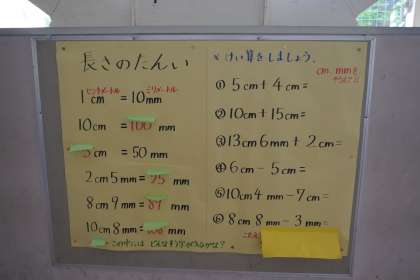 長さのたんい
センチメートル ミリメートル
1cm = 10mm
10cm = 100 mm
5cm = 50mm
2cm5mm= 25 mm
8cm9mm= 89 mm
10cm8mm= 108 mm
この中には どんなすう字が入るかな?
×けい算をしましょう。
cm、mmを
①5cm+4cm=
②10cm+15cm=
③13cm6mm+2cm=
④6cm-5cm=
⑤10cm4mm-7cm=
⑥8cm8mm-3mm=